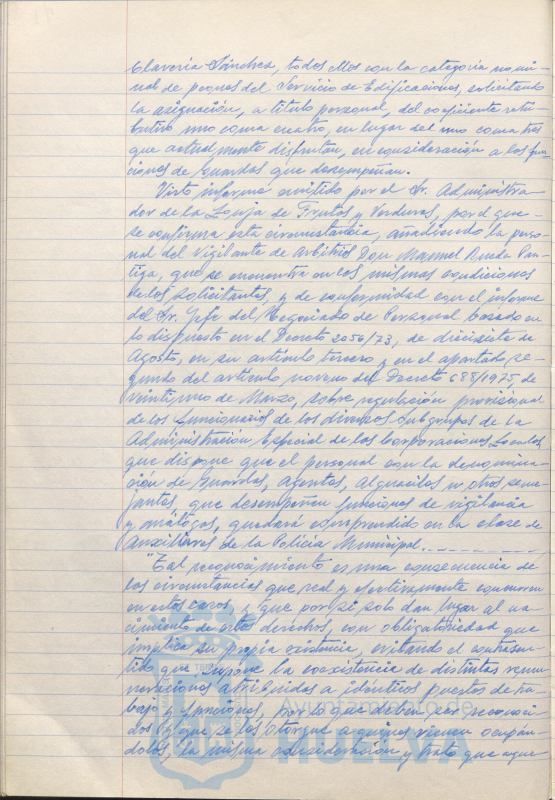 Clavería Sánchez, todos ellos con la categoría nomi-
nal de peones del Servicio de Edificaciones, solicitando
la asignación, a título personal, del coeficiente retri-
butivo uno coma cuatro, en lugar del uno coma tres
que actualmente disfrutan, en consideración a las fun-
ciones de guardas que desempeñan.
Visto informe emitido por el Sr. Administra-
dor de la Lonja de Frutas y Verduras, por el que
se confirma esta circunstancia, añadiendo la perso-
nal del Vigilante de Arbitrios Don Manuel Rueda
que se encuentra en las mismas condiciones
de los solicitantes, y de conformidad con el informe
del Sr. Jefe del Negociado de Personal basado en
lo dispuesto en el Decreto 2056/73, de diecisiete de
Agosto, en su artículo tercero y en el apartado se-
gundo del artículo noveno del Decreto 688/1975, de
veintiuno de Marzo, sobre regulación provisional
de los funcionarios de los diversos Subgrupos de la
Administración Especial de las Corporaciones Locales
que dispone que el personal con la denomina-
ción de Guardas, Agentes, Alguaciles u otros seme-
jantes, que desempeñen funciones de vigilancia
y análogos, quedará comprendido en la clase de
Auxiliares de la Policía Municipal.
"Tal reconocimiento es una consecuencia de
las circunstancias que real y efectivamente concurren
en estos casos, y que por sí solo dan lugar al na-
cimiento de estos derechos, con obligatoriedad que
implica su propia existencia, evitando el contrasen-
tido que supone la coexistencia de distintas remu-
neraciones atribuidas a idénticos puestos de tra-
bajo y funciones, por lo que deben ser reconoci-
dos y que se les otorgue a quienes vienen ocupán-
dolos, la misma consideración y trato que aque
Ayuntamiento de
HUELVA